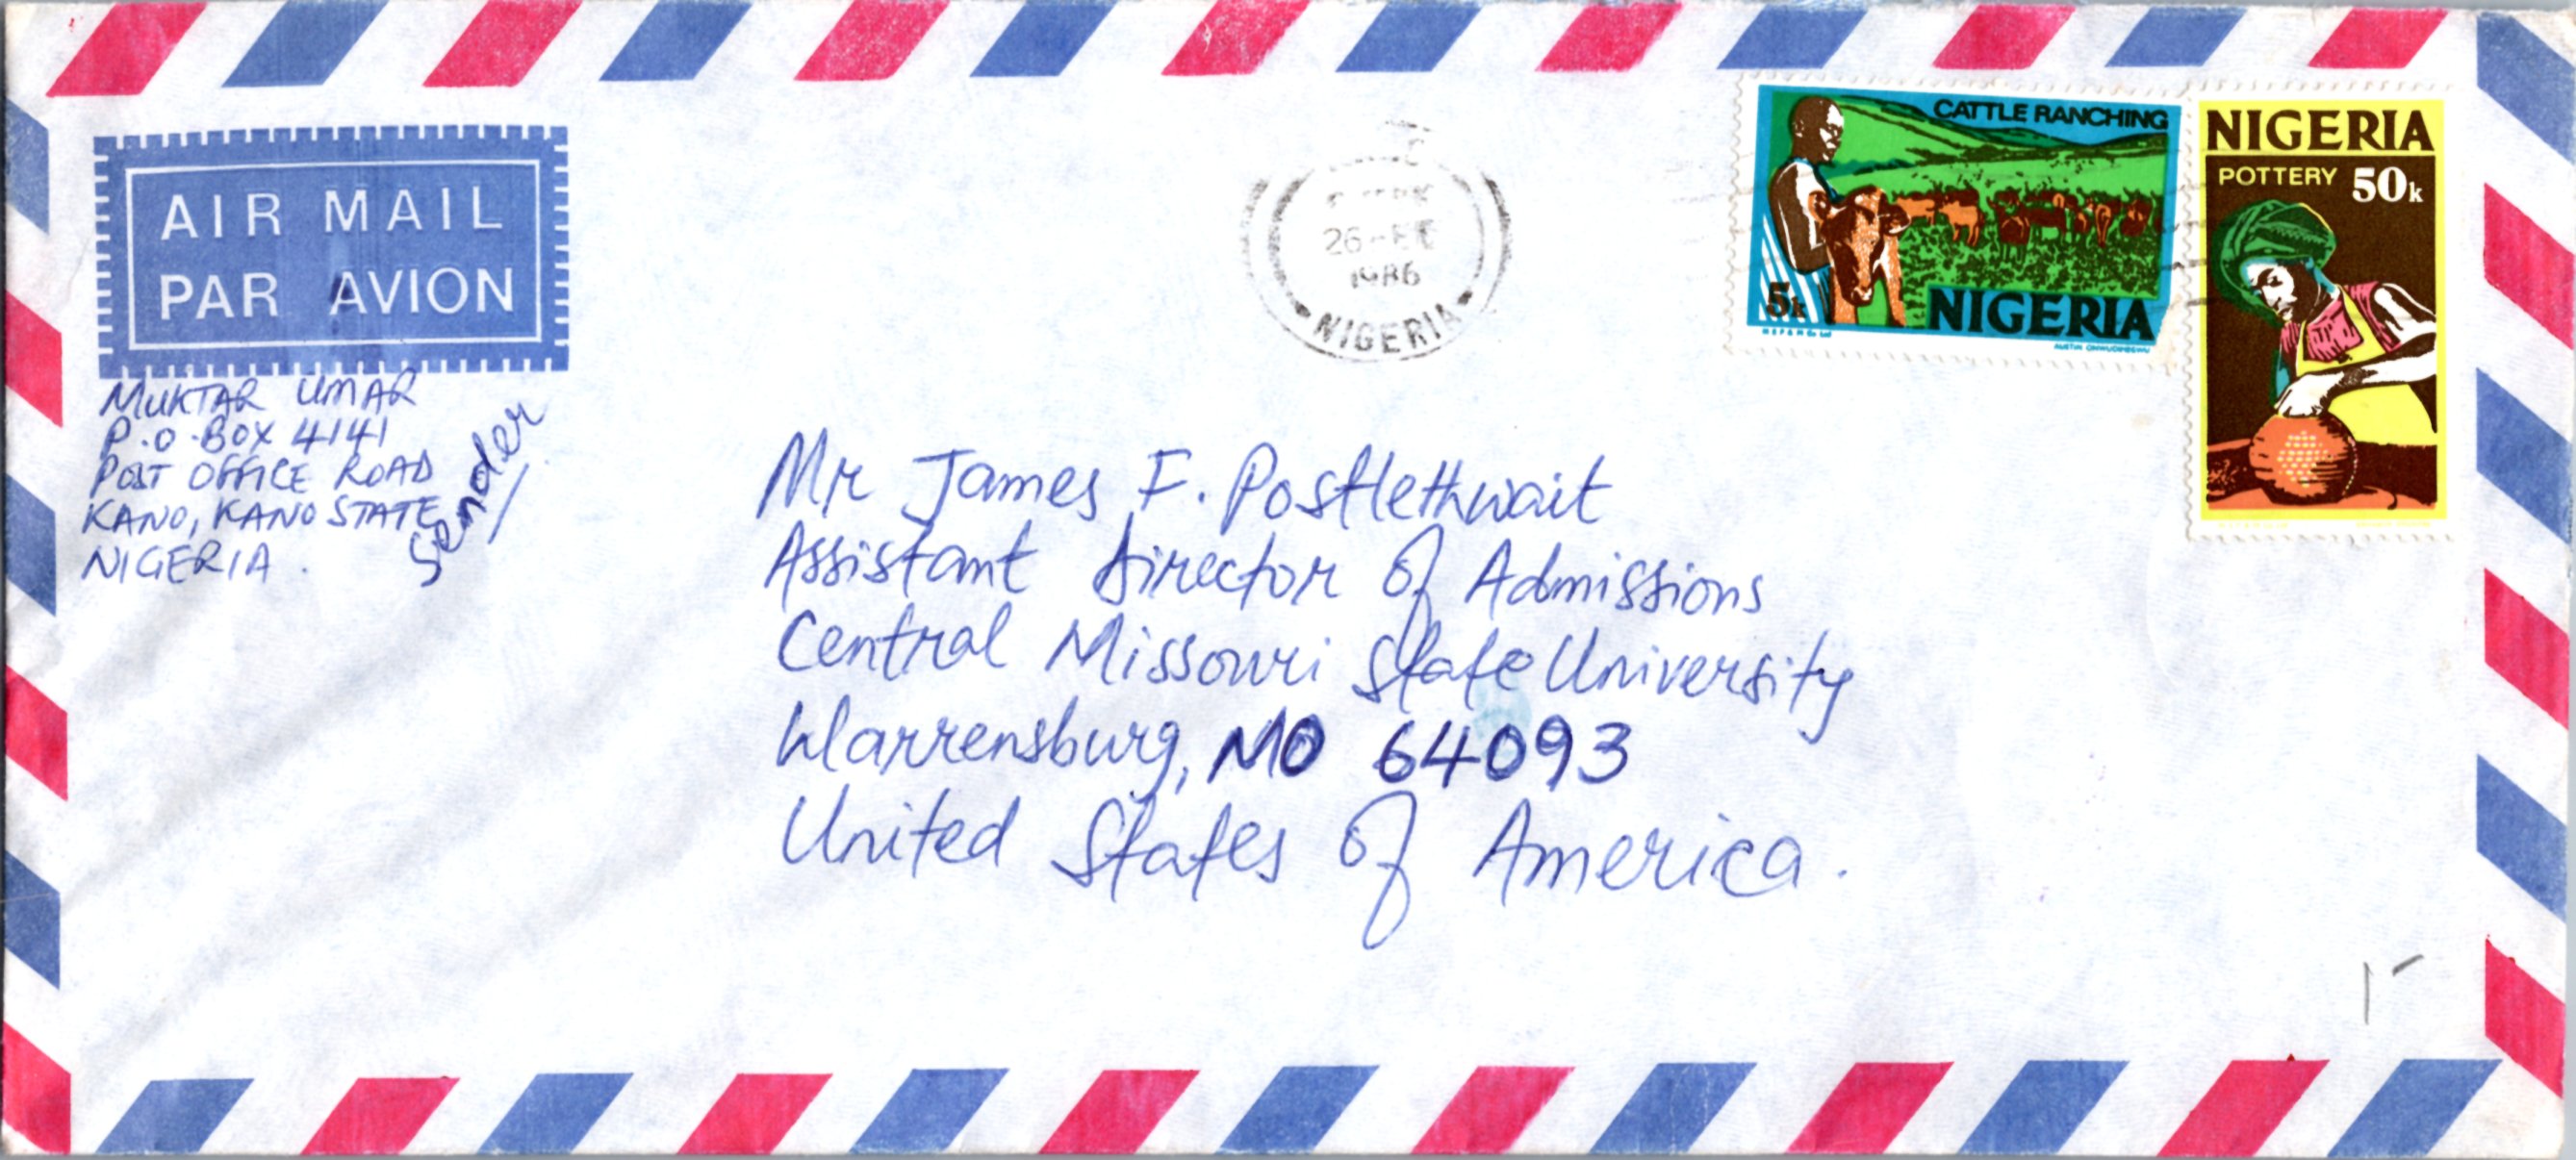 AIR MAIL
PAR AVION
MUKTAR UMAR
P.O. BOX 4141
POST OFFICE ROAD
KANO, KANO STATE
NIGERIA.
Sender
26
1986
NIGERIA
CATTLE RANCHING
5k
NIGERIA
NIGERIA
POTTERY 50k
Mr James F. Postlethwait
Assistant Director of Admissions
Central Missouri State University
Warrensburg, MO 64093
United States of America.